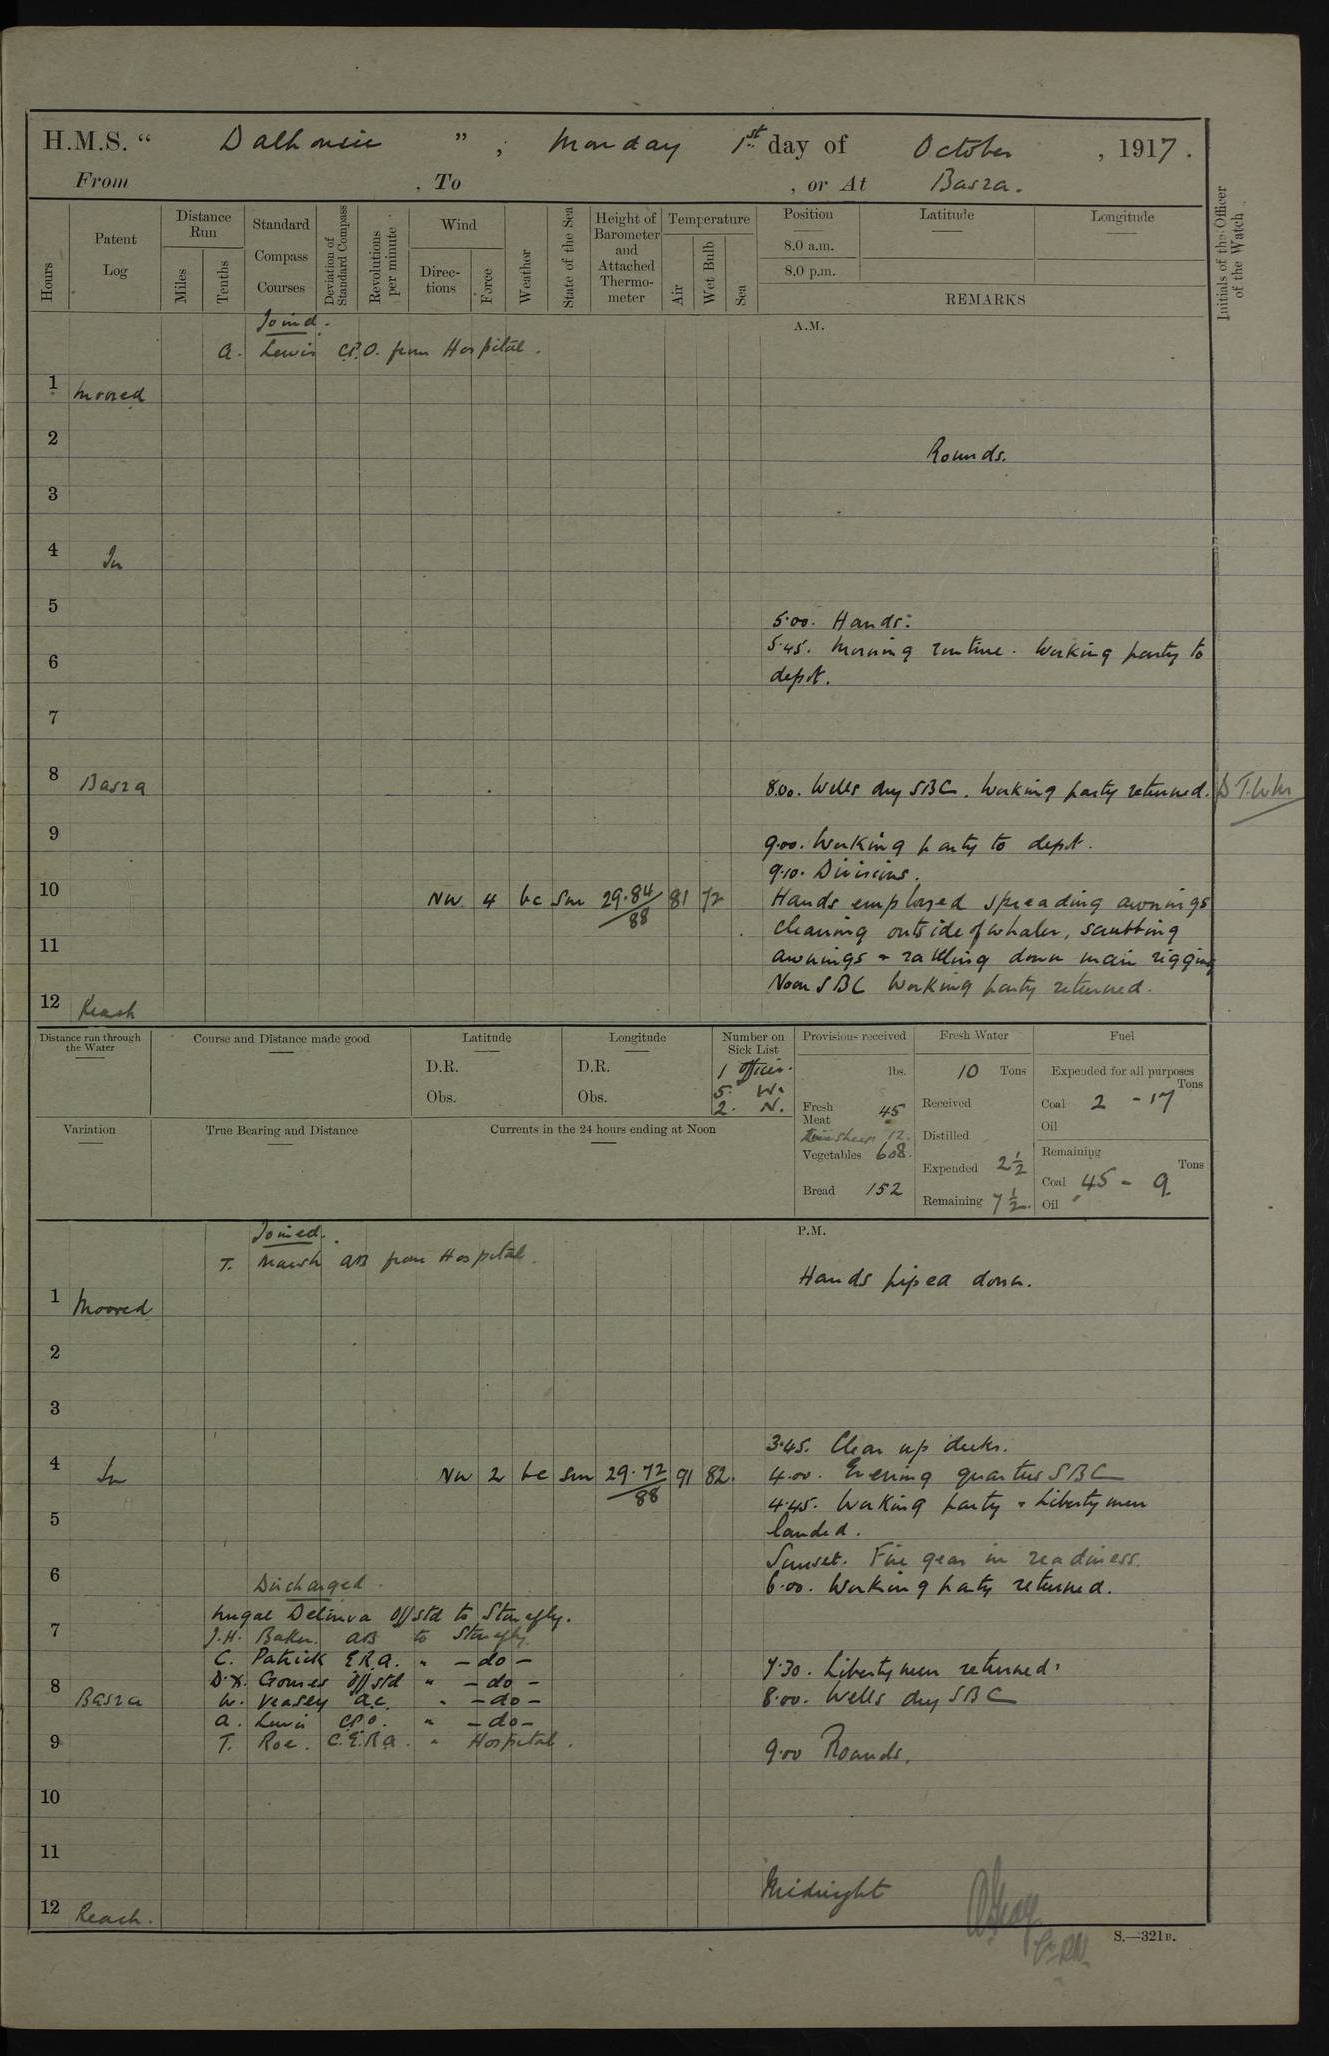 H.M.S. “ Dalhousie ” ; Monday 1st day of October , 1917 .
From , To , or At Basra .
Hours
Patent Log
Distance Run
Miles
Tenths
Standard Compass Courses
Deviation of Standard Compass
Revolutions per minute
Wind
Directions
Force
Weather
State of the Sea
Height of Barometer and Attached Thermometer
Temperature
Air
Wet Bulb
Sea
Position
8.0 a.m.
8.0 p.m.
Latitude
Longitude
REMARKS
Initials of the Officer of the Watch .
Joined .
A.M.
A. Lewis C.P.O. from Hospital .
1 Moored
2 Rounds.
3
4 In
5 5.00. Hands.
5.45. Morning routine . Working party to
6 depot.
7
8 Basra 8.00. Wells dry SBC. Working party returned.
9 9.00. Working party to depot.
9.10. Divisions.
10 NW 4 bc Sm 29.84/88 81 72 Hands employed spreading awnings
cleaning outside of whaler, scrubbing
11 awnings & rattling down main rigging
Noon SBC Working party returned.
12 Reach
Distance run through the Water
Course and Distance made good
Latitude
D.R.
Obs.
Longitude
D.R.
Obs.
Number on Sick List
1 Officer.
5. W.
2. N.
Provisions received
lbs.
Fresh Meat 45
12.
Vegetables 608.
Bread 152
Fresh Water
10 Tons
Received
Distilled
Expended 2½
Remaining 7½.
Fuel
Expended for all purposes
Tons
Coal 2 - 17
Oil
Remaining
Tons
Coal 45 - 9
Oil
Variation
True Bearing and Distance
Currents in the 24 hours ending at Noon
Joined.
P.M.
T. Marsh AB from Hospital.
Hands piped down.
1 Moored
2
3
3.45. Clear up decks.
4 In NW 2 bc Sm 29.72/88 91 82. 4.00. Evening quarters SBC
4.45. Working party & Liberty men
5 landed.
Sunset. Fire gear in readiness.
6 Discharged . 6.00. Working party returned.
Offstd to
7 J.H. Baker. AB to
C. Patrick E.R.A. " - do -
7.30. Liberty men returned.
Gomes Offstd " - do -
8 Basra W. Veasey A.C. " - do - 8.00. Wells dry SBC
A. Lewis CPO. " - do -
9 T. Roe. C.E.R.A. " Hospital . 9.00 Rounds.
10
11
Midnight
12 Reach.
S.—321B.